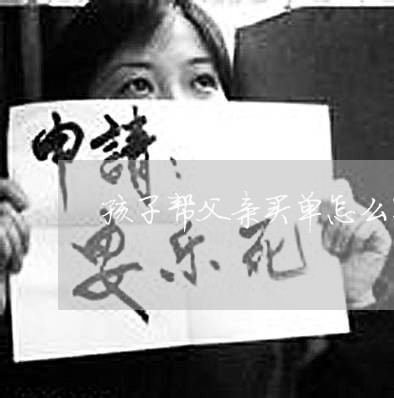 申請：
孩子帮父亲买单怎么
乐死